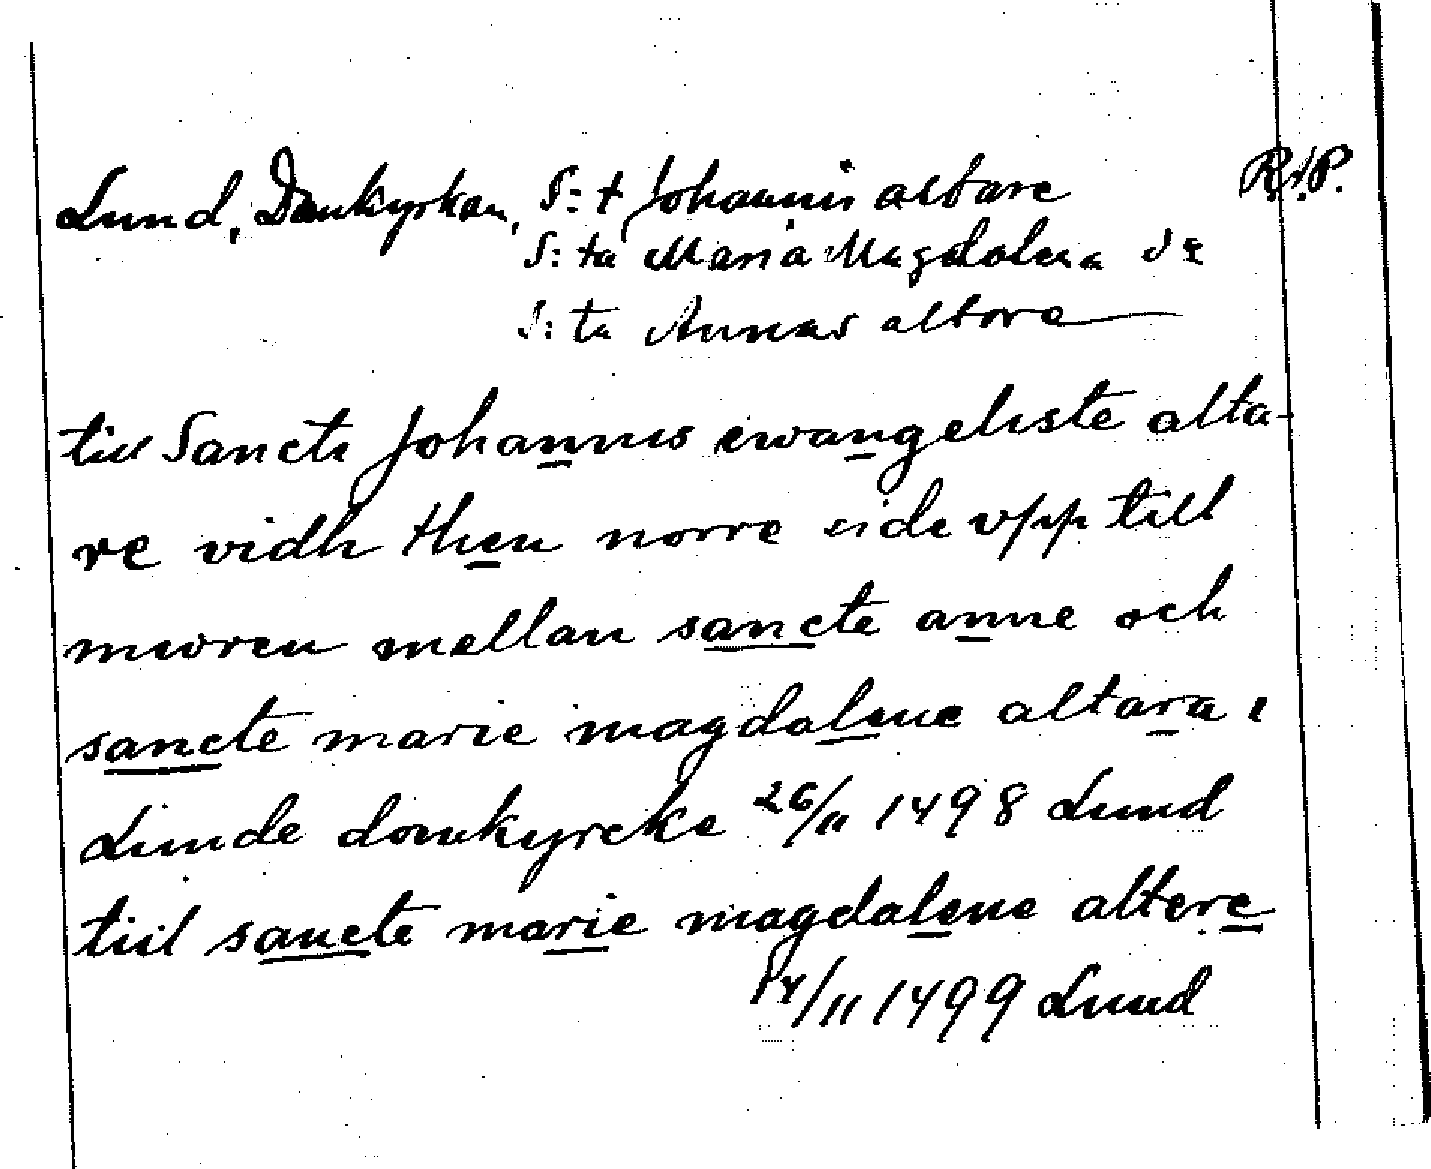 Lund, Domkyrkan, S:t Johannis altare R.P.
S:ta Maria Magdalena
S:ta Annas altare
till Sancti Johannis ewangeliste alta-
re vidh then norre side vpp till
mwren mellan sancte anne och
sancte marie magdalene altara i
Lunde domkyrcke 26/11 1498 Lund
tiil sancte marie magdalene altere
14/11 1499 Lund